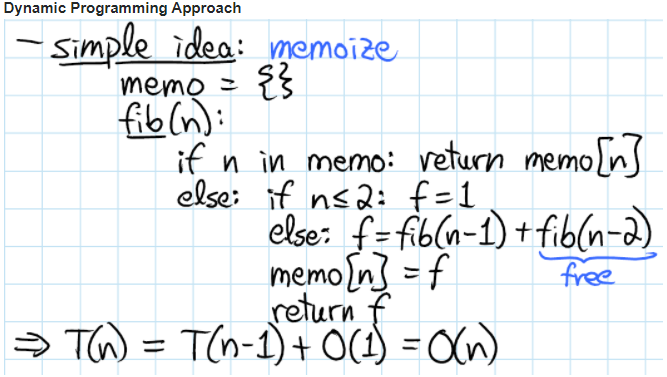 Dynamic Programming Approach
– simple idea: memoize
memo = {}
fib(n):
if n in memo: return memo[n]
else: if n≤2: f=1
else: f=fib(n-1)+fib(n-2)
memo[n] = f free
return f
⇒ T(n) = T(n-1)+ O(1) = O(n)